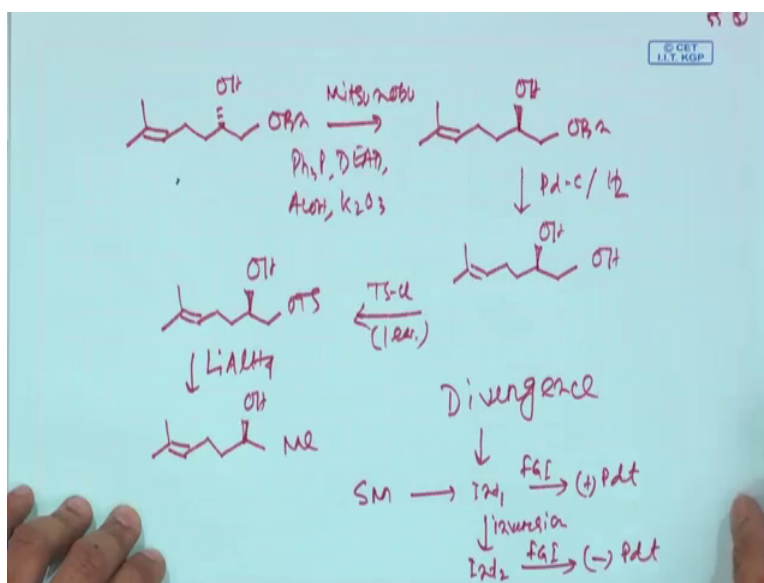 © CET
I.I.T. KGP
OH
OBn
Mitsunobu
Ph3P, DEAD,
AcOH, K2CO3
OH
OBn
Pd-C / H2
OH
OH
TS-Cl
(1 eq.)
OH
OTS
LiAlH4
OH
Me
Divergence
SM → Int1 FGI → (+) Pdt
↓ inversion
Int2 FGI → (-) Pdt